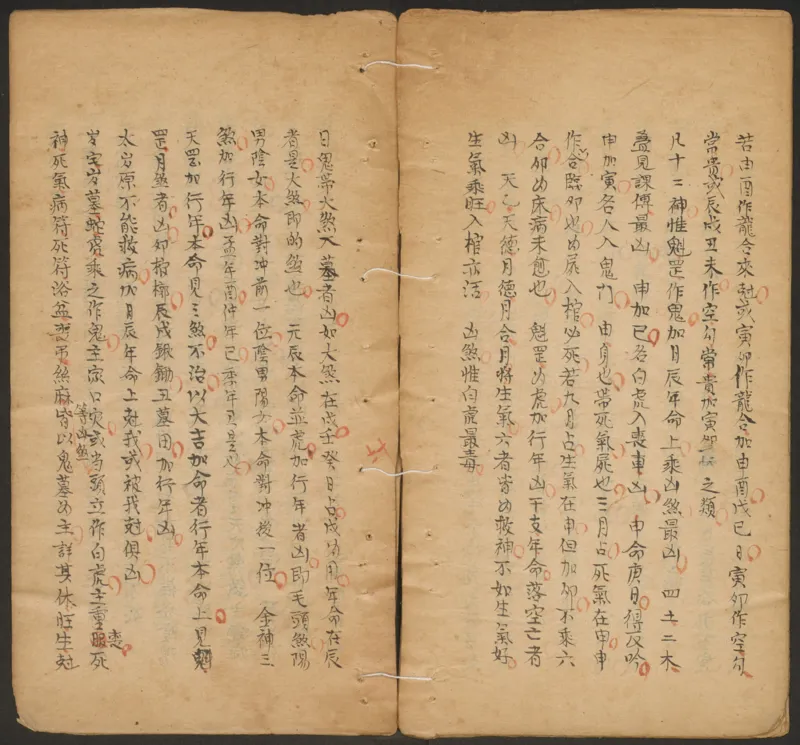 若申酉作龍合來尅或寅卯作龍合加申酉戊巳日寅卯作空勾
常貴或辰戌丑未作空勾常貴加寅卯 之類
凡十二神惟魁罡作鬼加月辰年命上乘凶煞最凶 四土二木
叠見課傳最凶 申加巳名白虎入喪車凶 申命庚月得反吟
申加寅名人入鬼門 申身也帶死氣屍也三月占死氣在申申
作合臨卯也為屍入棺必死若九月占生氣在申但加卯不乘六
合卯為床病未愈也 魁罡為虎加行年凶干支年命落空亡者
凶 天乙天德月德月合月將生氣六者皆為救神不如生氣好
生氣乘旺入棺亦活 凶煞惟白虎最毒
日鬼帶火煞入墓者凶如大煞在戌壬癸日占戌為用年命在辰
者是火煞即的煞也 元辰本命並虎加行年者凶即毛頭煞陽
男陰女本命對冲前一位陰男陽女本命對冲後一位 金神三
煞加行年凶孟年酉仲年巳季年丑是也
天罡加行年本命見三煞不治以大吉加命者行年本命上見魁
罡月煞者凶卯棺槨辰戌鍬鋤丑墓田加行年凶
太岁原不能救病加月辰年命上尅我或被我尅俱凶
岁宅岁墓蛇虎乘之作鬼主家口灾或当頭立作白虎主重服死
神死氣病符死符浴盆 吊絲麻等凶煞皆以鬼墓為主詳其休旺生尅